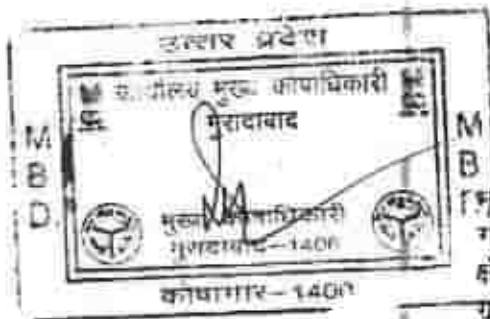 उत्तर प्रदेश
कार्यालय मुख्य कोषाधिकारी
मुरादाबाद
MBD
MB
मुख्य कोषाधिकारी
मुरादाबाद-1400
कोषागार-1400